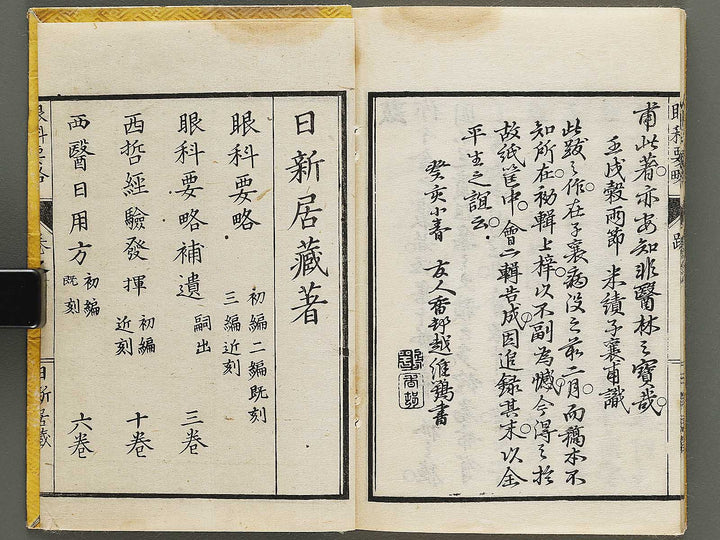 甫此著亦安知非醫林之寶哉
壬戌穀雨節 米績子襄甫識
此跋之作在子襄病没之前二月而稿本不
知所在初輯上梓以不副為憾今得之於
故紙筐中會二輯告成因追録其末以全
平生之誼云
癸亥小春 友人香邨越維鶴書
眼科要略 跋
日新居藏著
眼科要略 初編二編既刻 三編近刻
眼科要略補遺 嗣出 三卷
西哲經驗發揮 初編近刻 十卷
西醫日用方 初編既刻 六卷
日新居藏